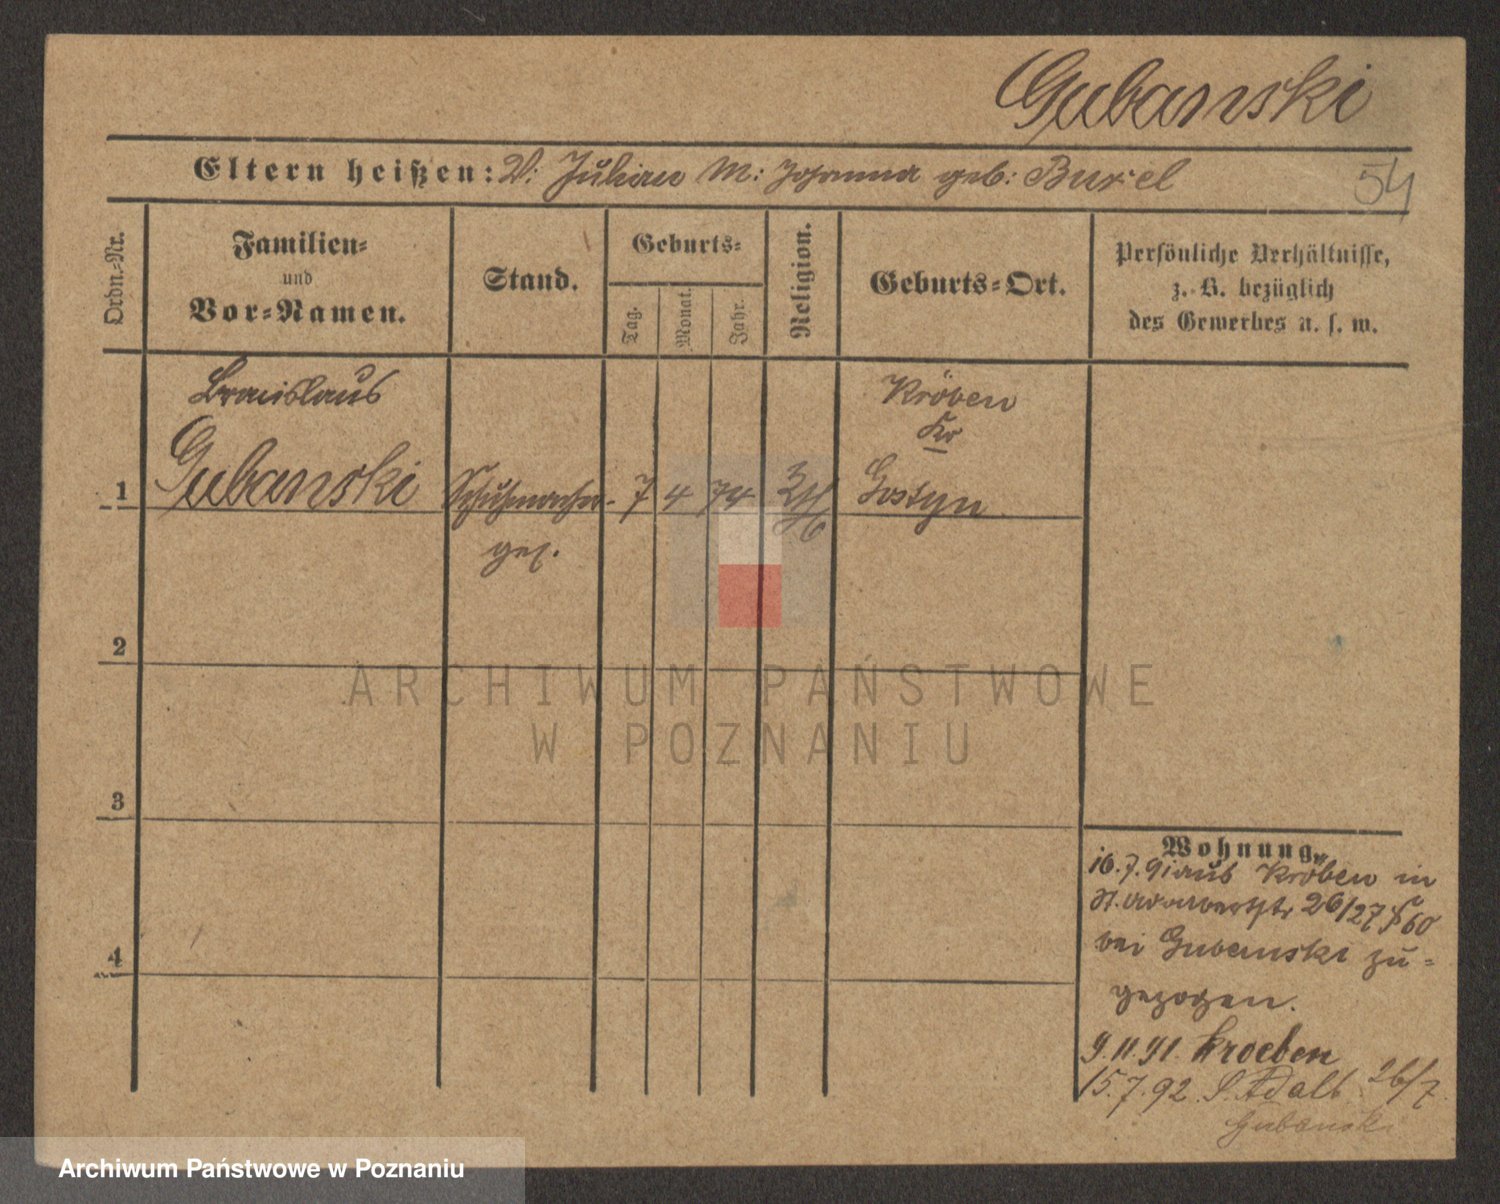 Gubanski
Eltern heißen: V: Julian M: Johanna geb: Burel
54
Ordn.-Nr.
Familien-
und
Vor-Namen.
Stand.
Geburts-
Tag.
Monat.
Jahr.
Religion.
Geburts-Ort.
Persönliche Verhältnisse,
z. B. bezüglich
des Gewerbes u. s. w.
Bronislaus
Kröben
Kr
1
Gubanski
Schuhmacher-
7
4
74
Gostyn
ges.
2
ARCHIWUM PAŃSTWOWE
W POZNANIU
3
4
Wohnung.
16.7.91 aus Kröben in
26/27
bei Gubanski zu-
gezogen.
9.11.91. Kroeben
15.7.92. S. Adalb. 26/7.
Gubanski
Archiwum Państwowe w Poznaniu